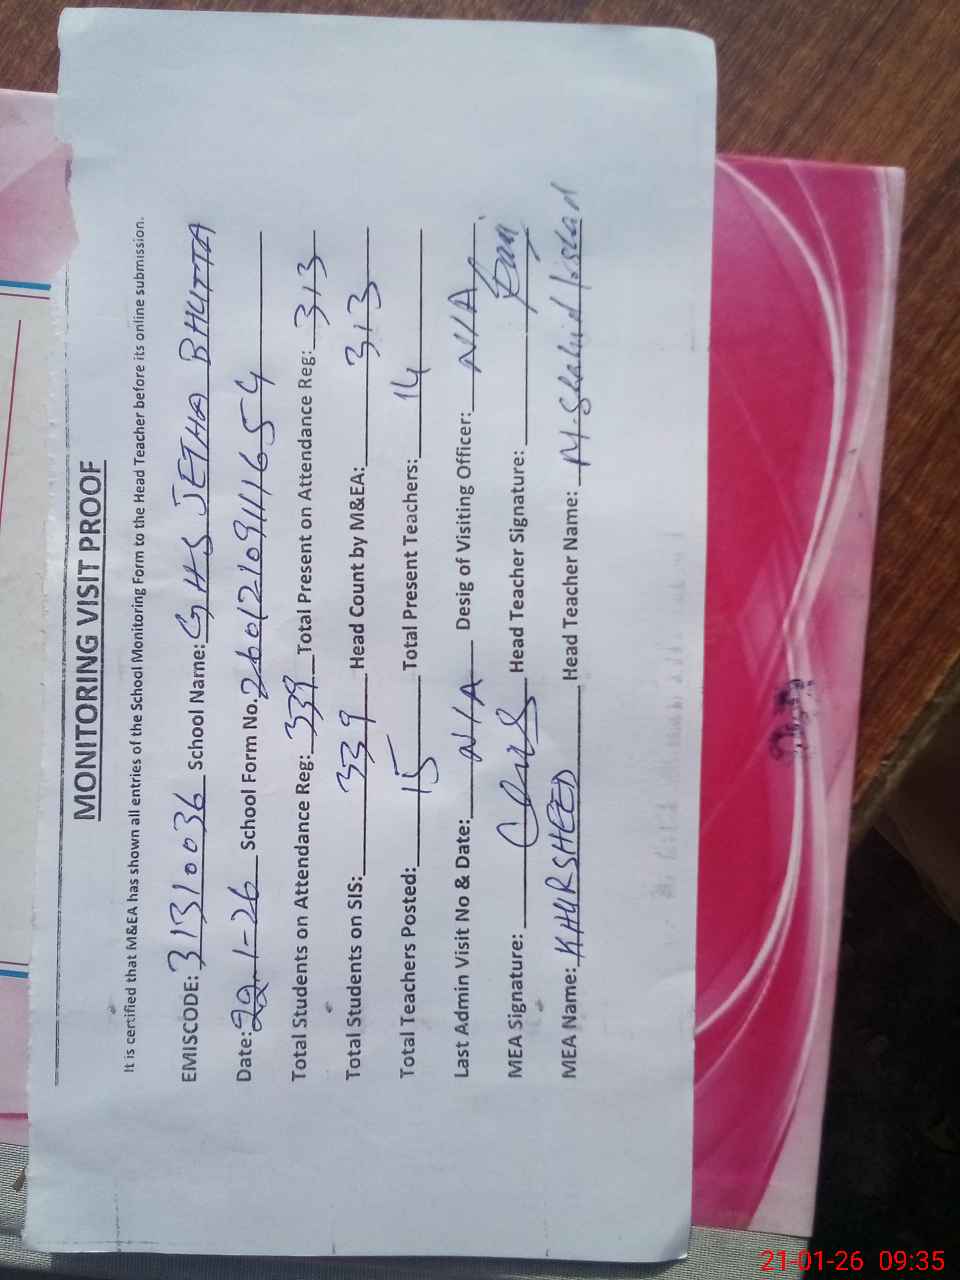 MONITORING VISIT PROOF
It is certified that M&EA has shown all entries of the School Monitoring Form to the Head Teacher before its online submission.
EMISCODE: 31310036 School Name: GHS JETHA BHUTTA
Date: 22-1-26 School Form No. 2601210911654
Total Students on Attendance Reg: 339 Total Present on Attendance Reg: 313
Total Students on SIS: 339 Head Count by M&EA: 313
Total Teachers Posted: 15 Total Present Teachers: 14
Last Admin Visit No & Date: N/A Desig of Visiting Officer: N/A
MEA Signature: Head Teacher Signature:
MEA Name: KHURSHEED Head Teacher Name: M. Shahid
21-01-26 09:35